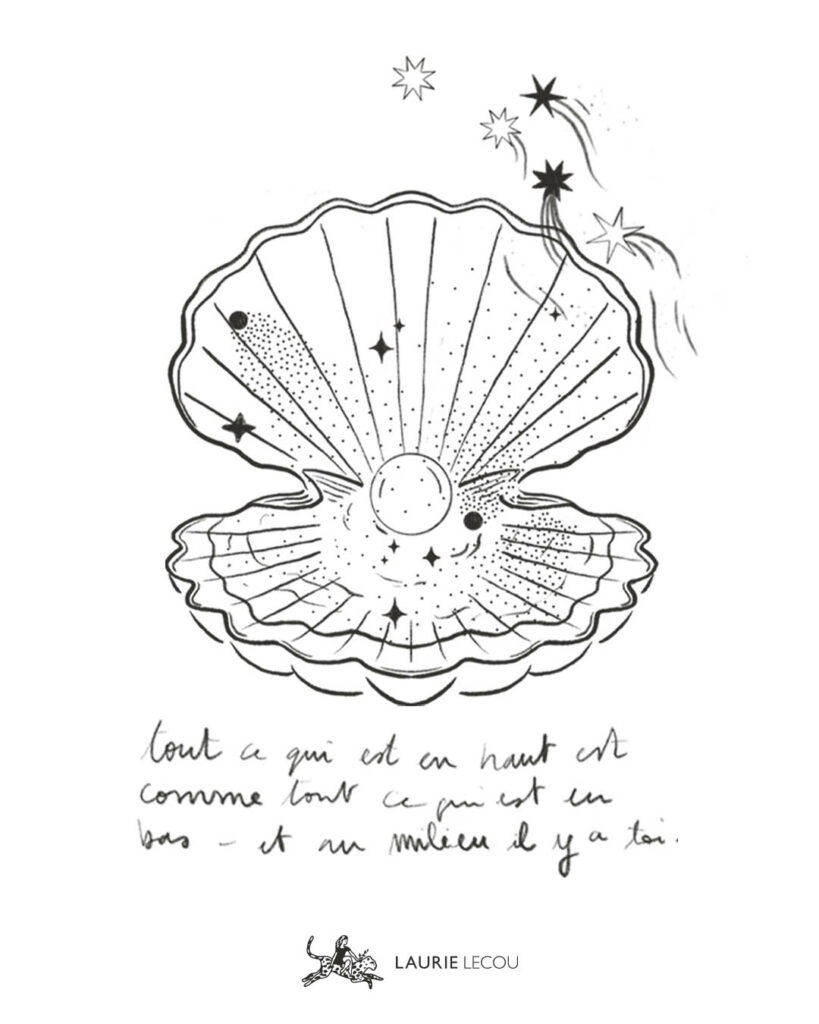 tout ce qui est en haut est
comme tout ce qui est en
bas - et au milieu il y a toi.
LAURIE LECOU